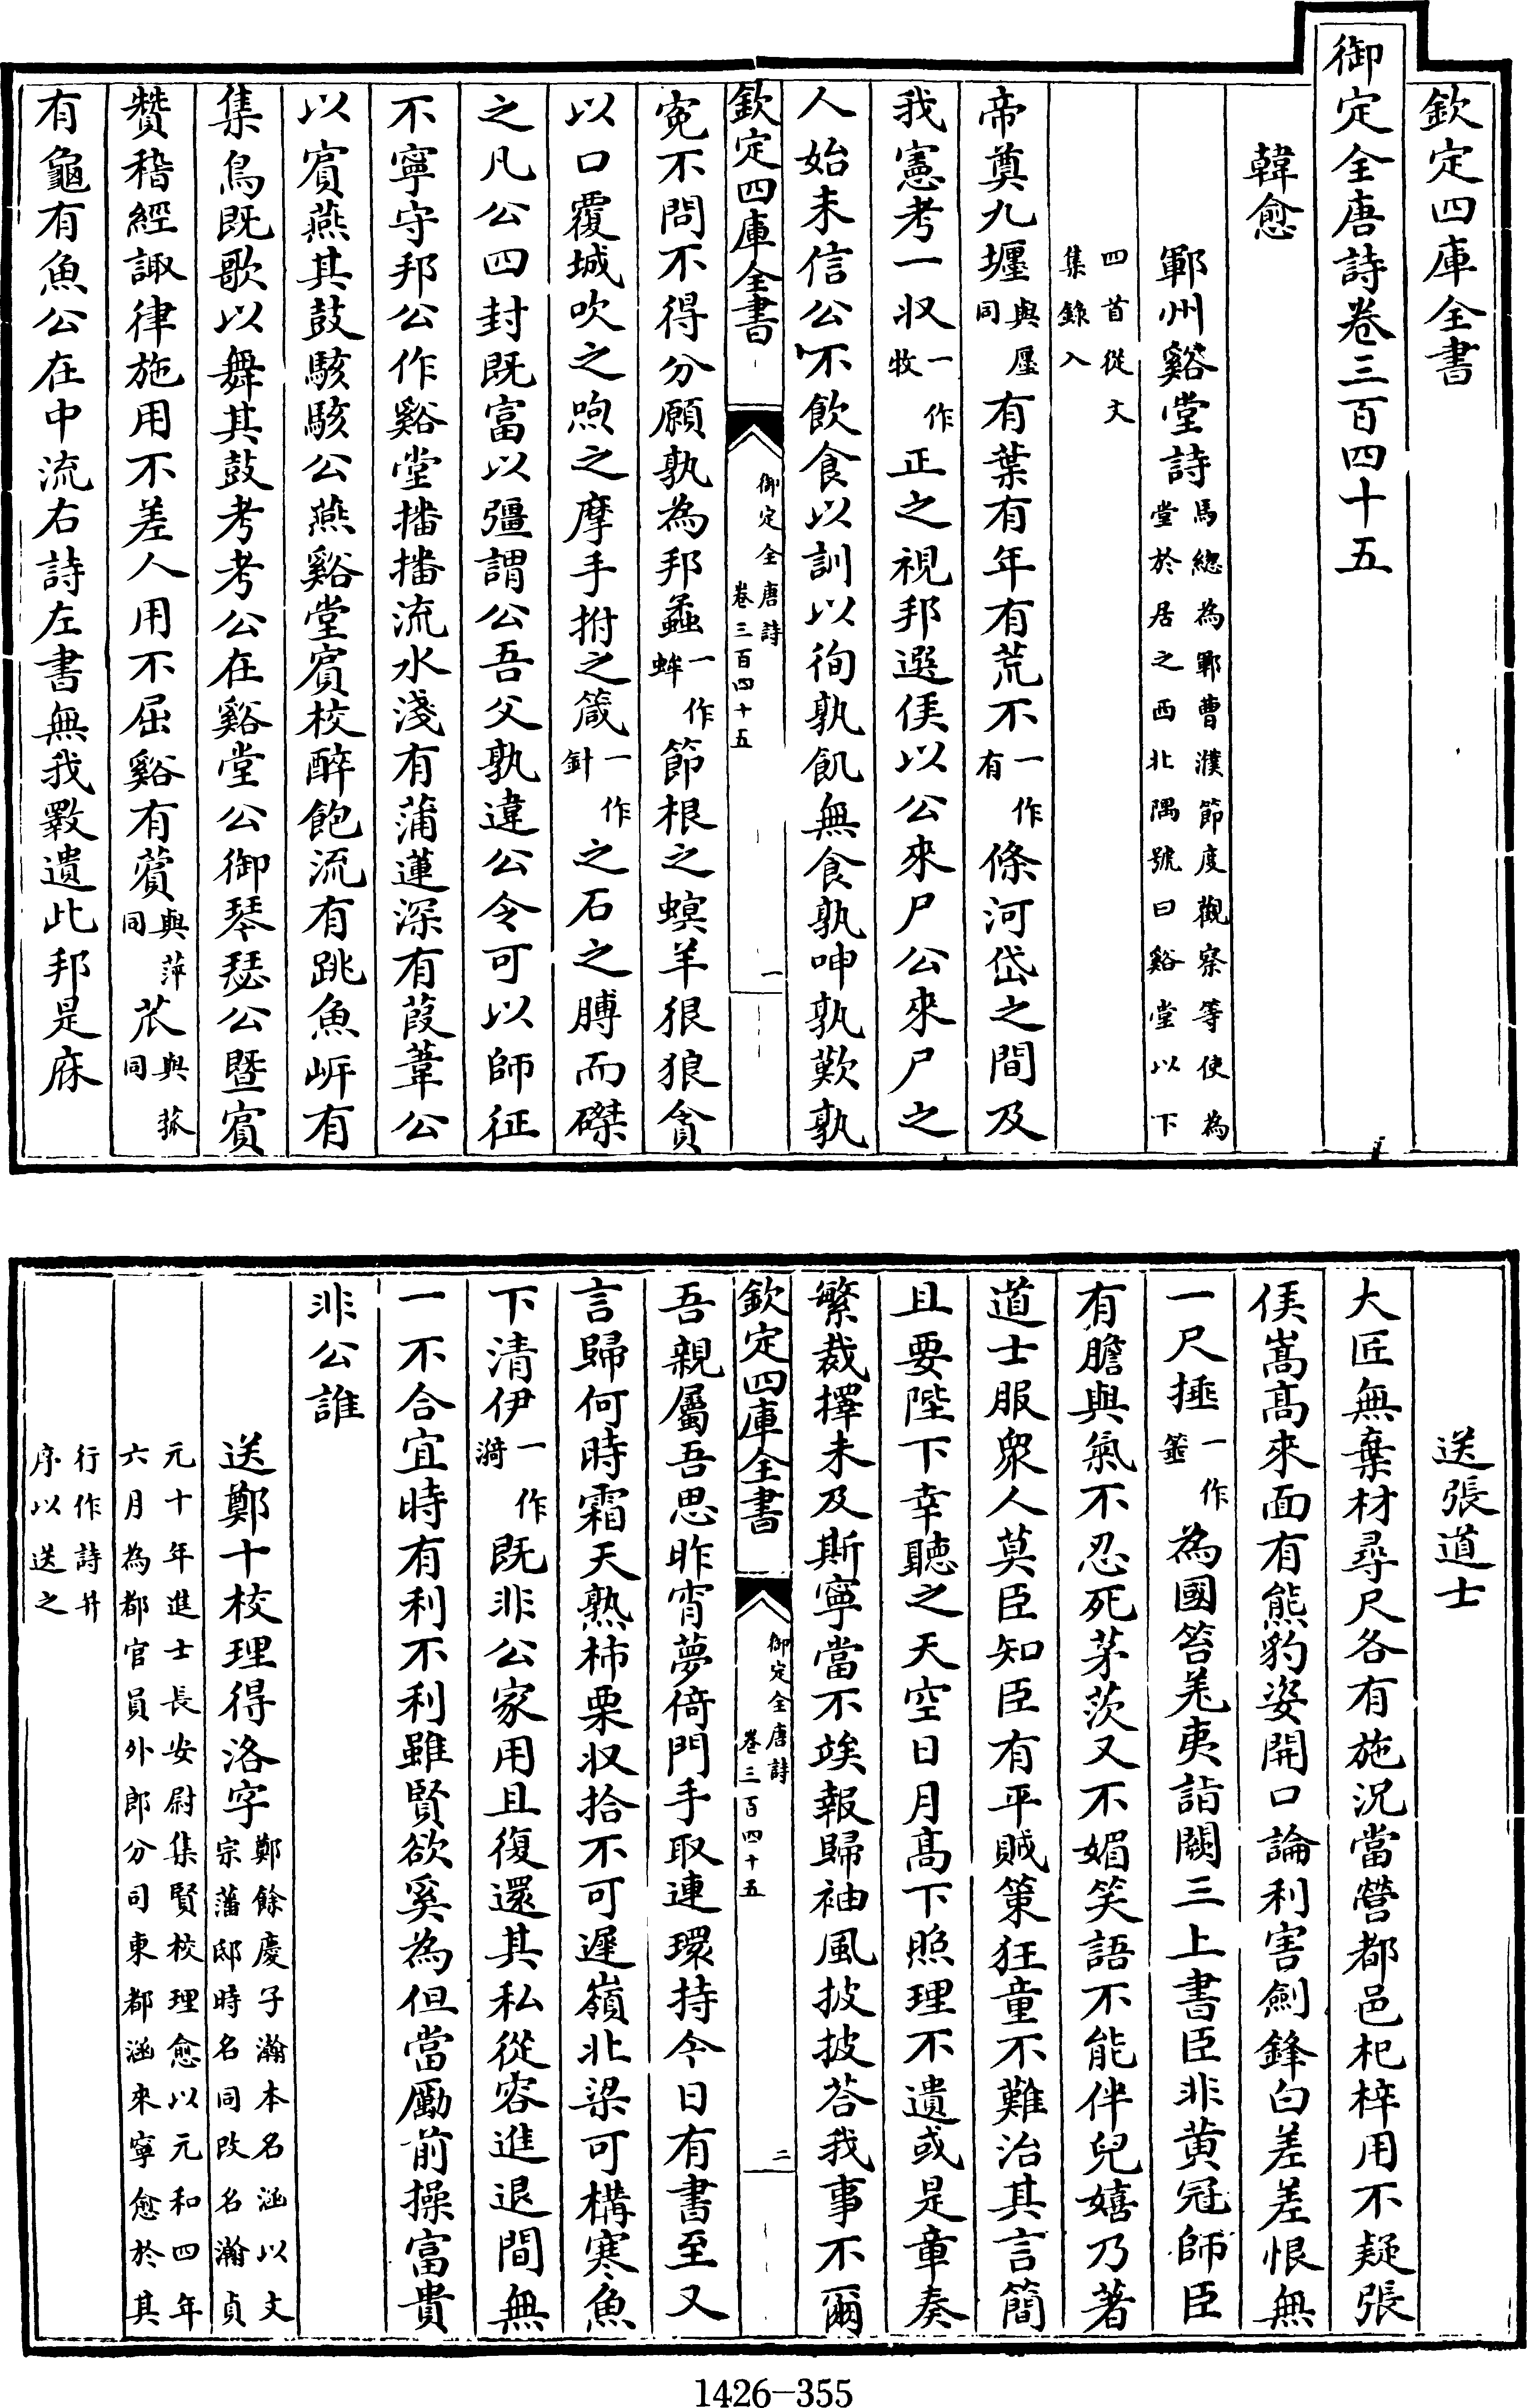 欽定四庫全書
御定全唐詩卷三百四十五
韓愈
鄆州谿堂詩馬總為鄆曹濮節度觀察等使為堂於居之西北隅號曰谿堂以下
四首從文集錄入
帝奠九壥與廛同有葉有年有荒不一作有條河岱之間及
我憲考一收一作牧正之視邦選侯以公來尸公來尸之
人始未信公不飲食以訓以徇孰飢無食孰呻孰歎孰
欽定四庫全書 御定全唐詩卷三百四十五 一
寃不問不得分願孰為邦蟊一作蛑節根之螟羊狠狼貪
以口覆城吹之喣之摩手拊之箴一作針之石之膊而磔
之凡公四封既富以彊謂公吾父孰違公令可以師征
不寧守邦公作谿堂播播流水淺有蒲蓮深有葭葦公
以賓燕其鼓駭駭公燕谿堂賓校醉飽流有跳魚岍有
集鳥既歌以舞其鼓考考公在谿堂公御琴瑟公暨賓
贊稽經諏律施用不差人用不屈谿有薲與萍同苽與菰同
有龜有魚公在中流右詩左書無我斁遺此邦是庥
送張道士
大匠無棄材尋尺各有施況當營都邑杞梓用不疑張
侯嵩高來面有熊豹姿開口論利害劍鋒白差差恨無
一尺捶一作箠為國笞羌夷詣闕三上書臣非黃冠師臣
有膽與氣不忍死茅茨又不媚笑語不能伴兒嬉乃著
道士服衆人莫臣知臣有平賊策狂童不難治其言簡
且要陛下幸聽之天空日月高下照理不遺或是章奏
繁裁擇未及斯寧當不竢報歸袖風披披荅我事不爾
欽定四庫全書 御定全唐詩卷三百四十五 二
吾親屬吾思昨宵夢倚門手取連環持今日有書至又
言歸何時霜天熟柿栗收拾不可遲嶺北梁可構寒魚
下清伊一作漪既非公家用且復還其私從容進退間無
一不合宜時有利不利雖賢欲奚為但當勵前操富貴
非公誰
送鄭十校理得洛字鄭餘慶子瀚本名涵以文宗藩邸時名同改名瀚貞
元十年進士長安尉集賢校理愈以元和四年六月為都官員外郎分司東都涵來寧愈於其
行作詩并序以送之
1426-355